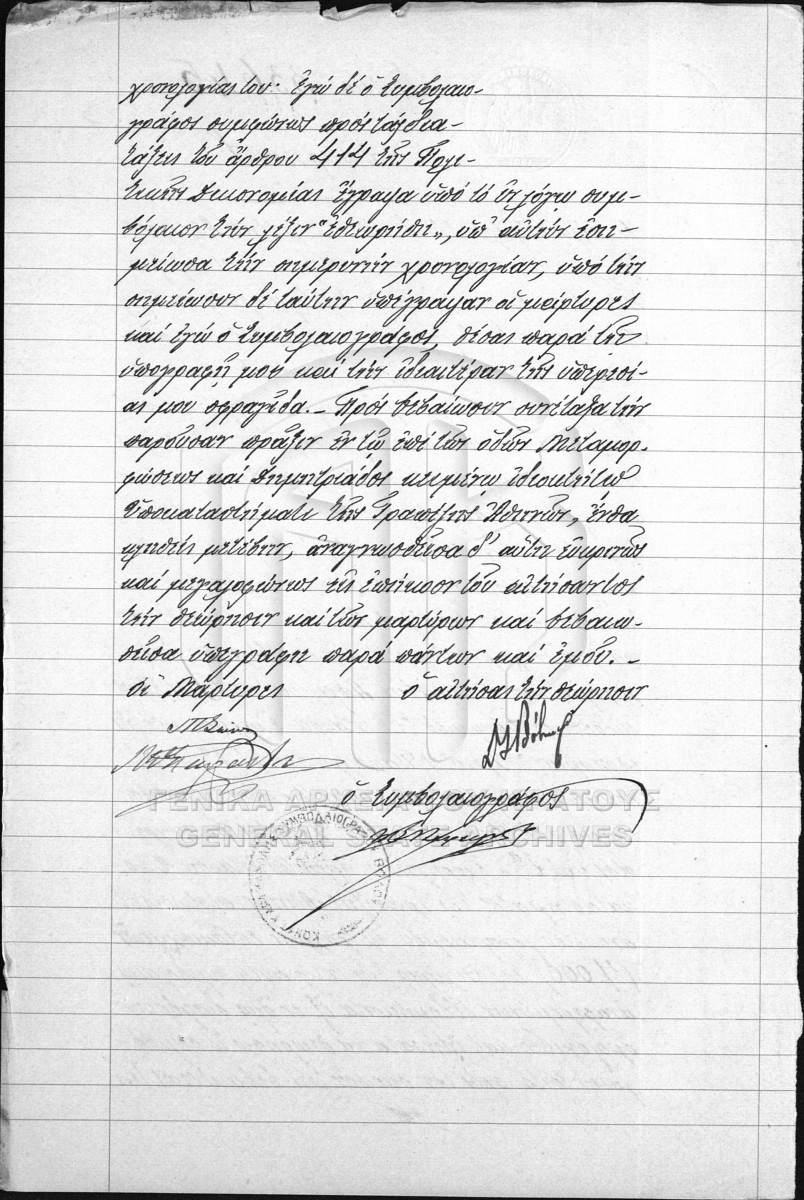 χρονολογίας του. Ἐγώ δέ ὁ Συμβολαιο-
γράφος συμφώνως πρός τάς δια-
τάξεις τοῦ ἄρθρου 414 τῆς Πολι-
τικῆς Δικονομίας ἔγραψα ὑπό τό ἐν λόγῳ συμ-
βόλαιον τήν λέξιν "ἐθεωρήθη„, ὑπ' αὐτήν ἐση-
μείωσα τήν σημερινήν χρονολογίαν, ὑπό τήν
σημείωσιν δέ ταύτην ὑπέγραψαν οἱ μάρτυρες
καί ἐγώ ὁ Συμβολαιογράφος, θέσας παρά τῇ
ὑπογραφῇ μου καί τήν ἰδιαιτέραν τῆς ὑπηρεσί-
ας μου σφραγῖδα. — Πρός βεβαίωσιν συνέταξα τήν
παροῦσαν πρᾶξιν ἐν τῷ ἐπί τῶν ὁδῶν Μεταμορ-
φώσεως καί Δημητριάδος κειμένῳ ἰδιοκτήτῳ
Ὑποκαταστήματι τῆς Τραπέζης Ἀθηνῶν, ἔνθα
κληθείς μετέβην, ἀναγνωσθεῖσα δ' αὕτη εὐκρινῶς
καί μεγαλοφώνως εἰς ἐπήκοον τοῦ αἰτήσαντος
τήν θεώρησιν καί τῶν μαρτύρων καί βεβαιω-
θεῖσα ὑπεγράφη παρά πάντων καί ἐμοῦ. —
Οἱ Μάρτυρες ὁ αἰτήσας τήν θεώρησιν
ὁ Συμβολαιογράφος
ΓΕΝΙΚΑ ΑΡΧΕΙΑ ΤΟΥ ΚΡΑΤΟΥΣ
GENERAL STATE ARCHIVES